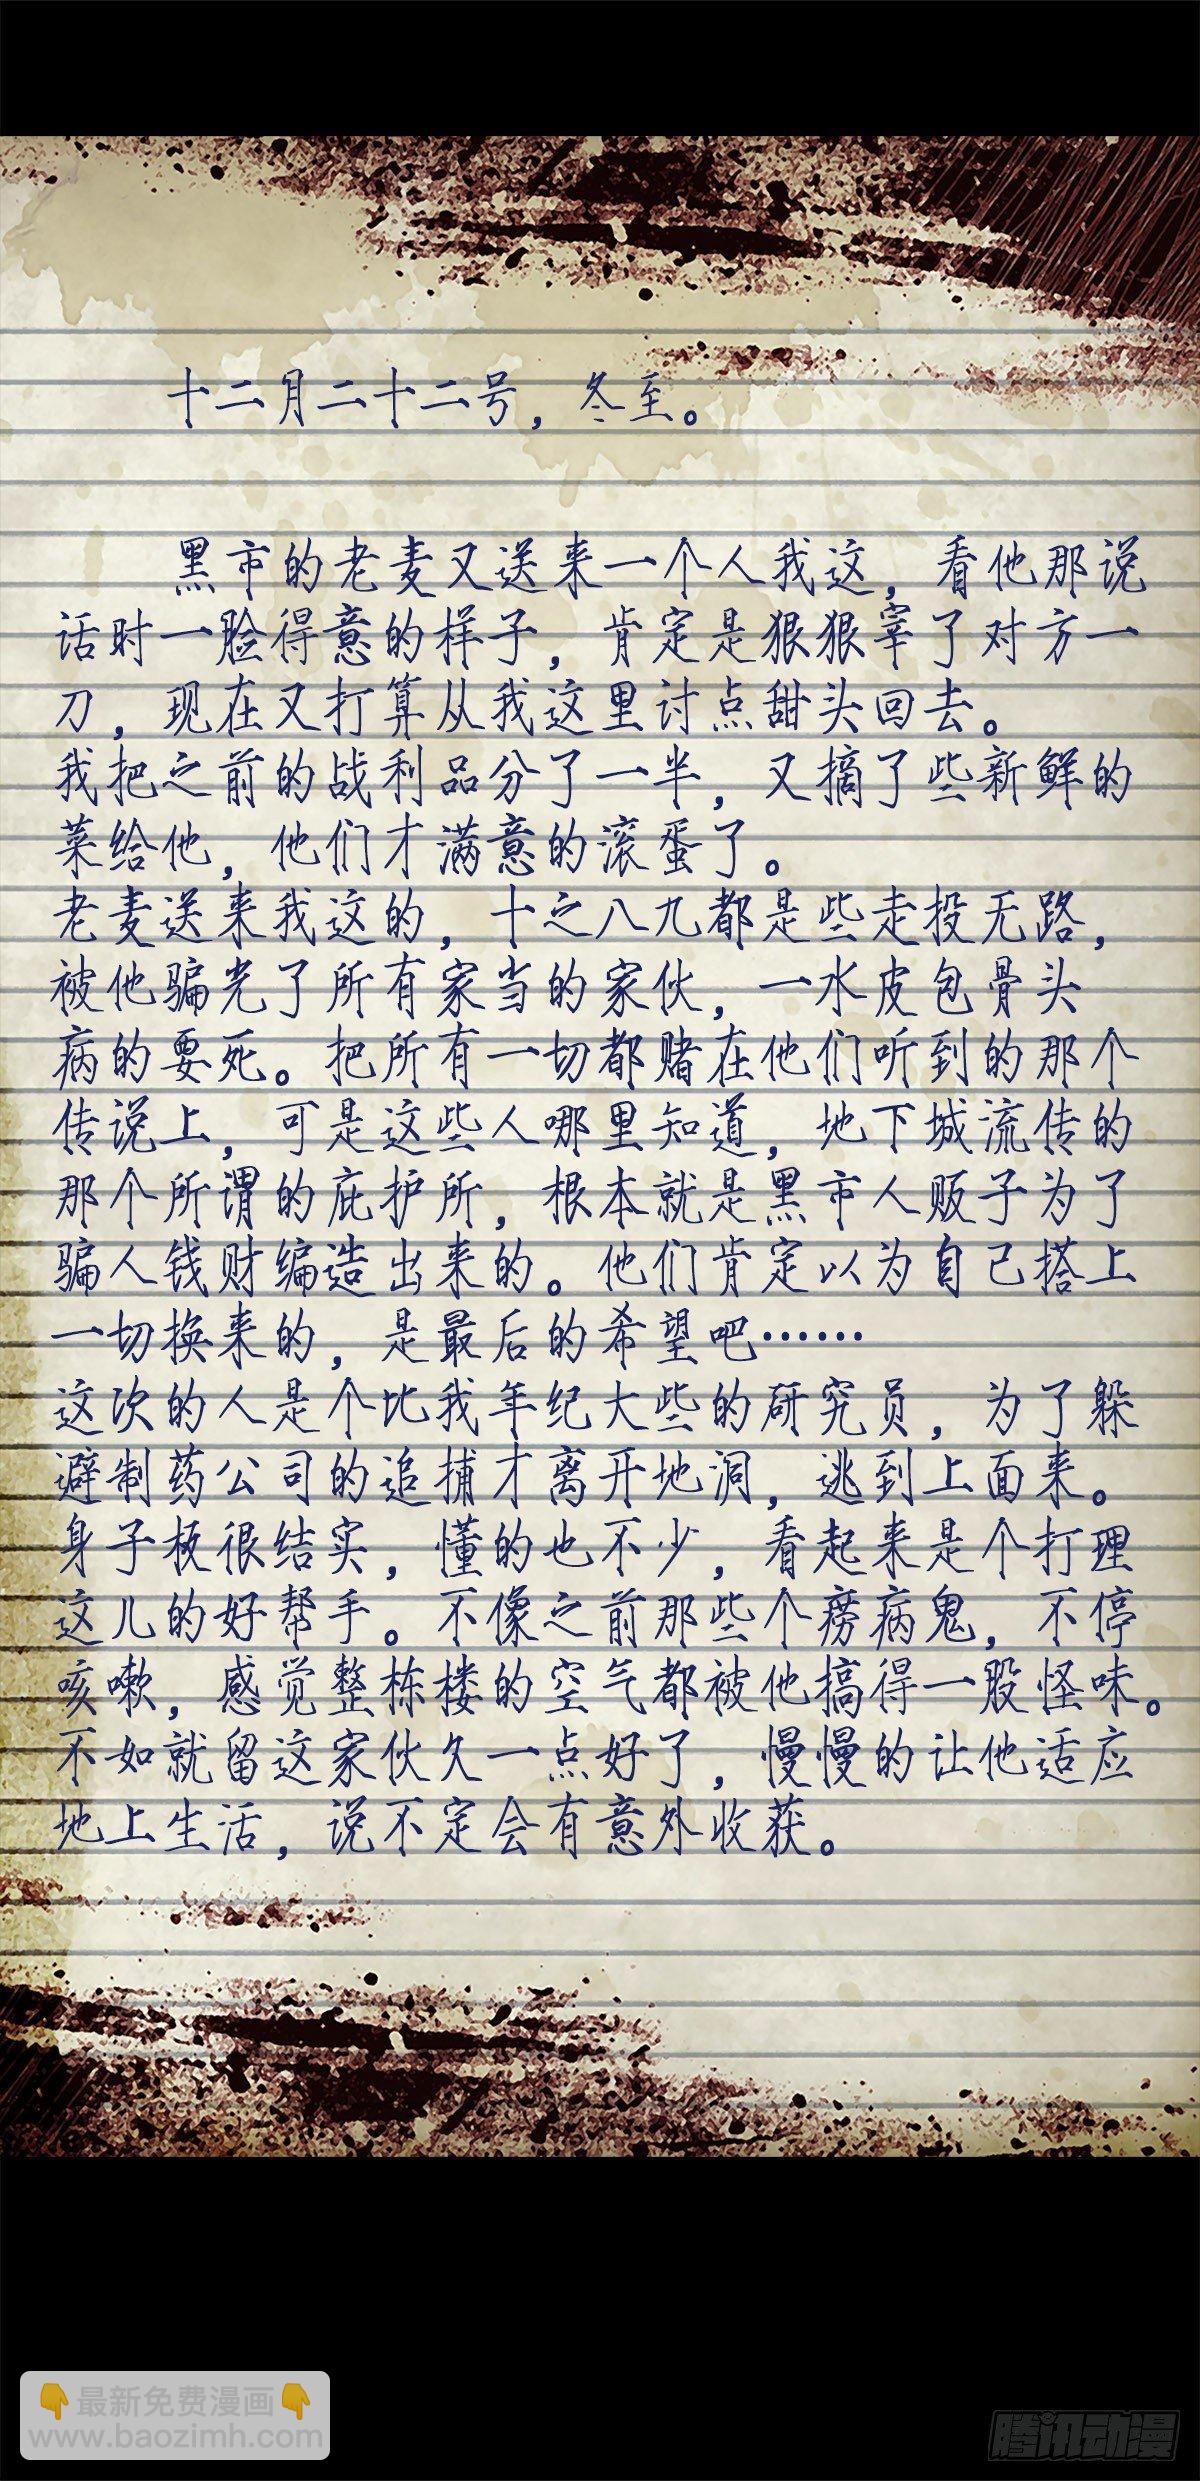 十二月二十二号，冬至。
黑市的老麦又送来一个人我这，看他那说
话时一脸得意的样子，肯定是狠狠宰了对方一
刀，现在又打算从我这里讨点甜头回去。
我把之前的战利品分了一半，又摘了些新鲜的
菜给他，他们才满意的滚蛋了。
老麦送来我这的，十之八九都是些走投无路，
被他骗光了所有家当的家伙，一水皮包骨头
病的要死。把所有一切都赌在他们听到的那个
传说上，可是这些人哪里知道，地下城流传的
那个所谓的庇护所，根本就是黑市人贩子为了
骗人钱财编造出来的。他们肯定以为自己搭上
一切换来的，是最后的希望吧……
这次的人是个比我年纪大些的研究员，为了躲
避制药公司的追捕才离开地洞，逃到上面来。
身子板很结实，懂的也不少，看起来是个打理
这儿的好帮手。不像之前那些个痨病鬼，不停
咳嗽，感觉整栋楼的空气都被他搞得一股怪味。
不如就留这家伙久一点好了，慢慢的让他适应
地上生活，说不定会有意外收获。
👇最新免费漫画👇
www.baozimh.com
腾讯动漫